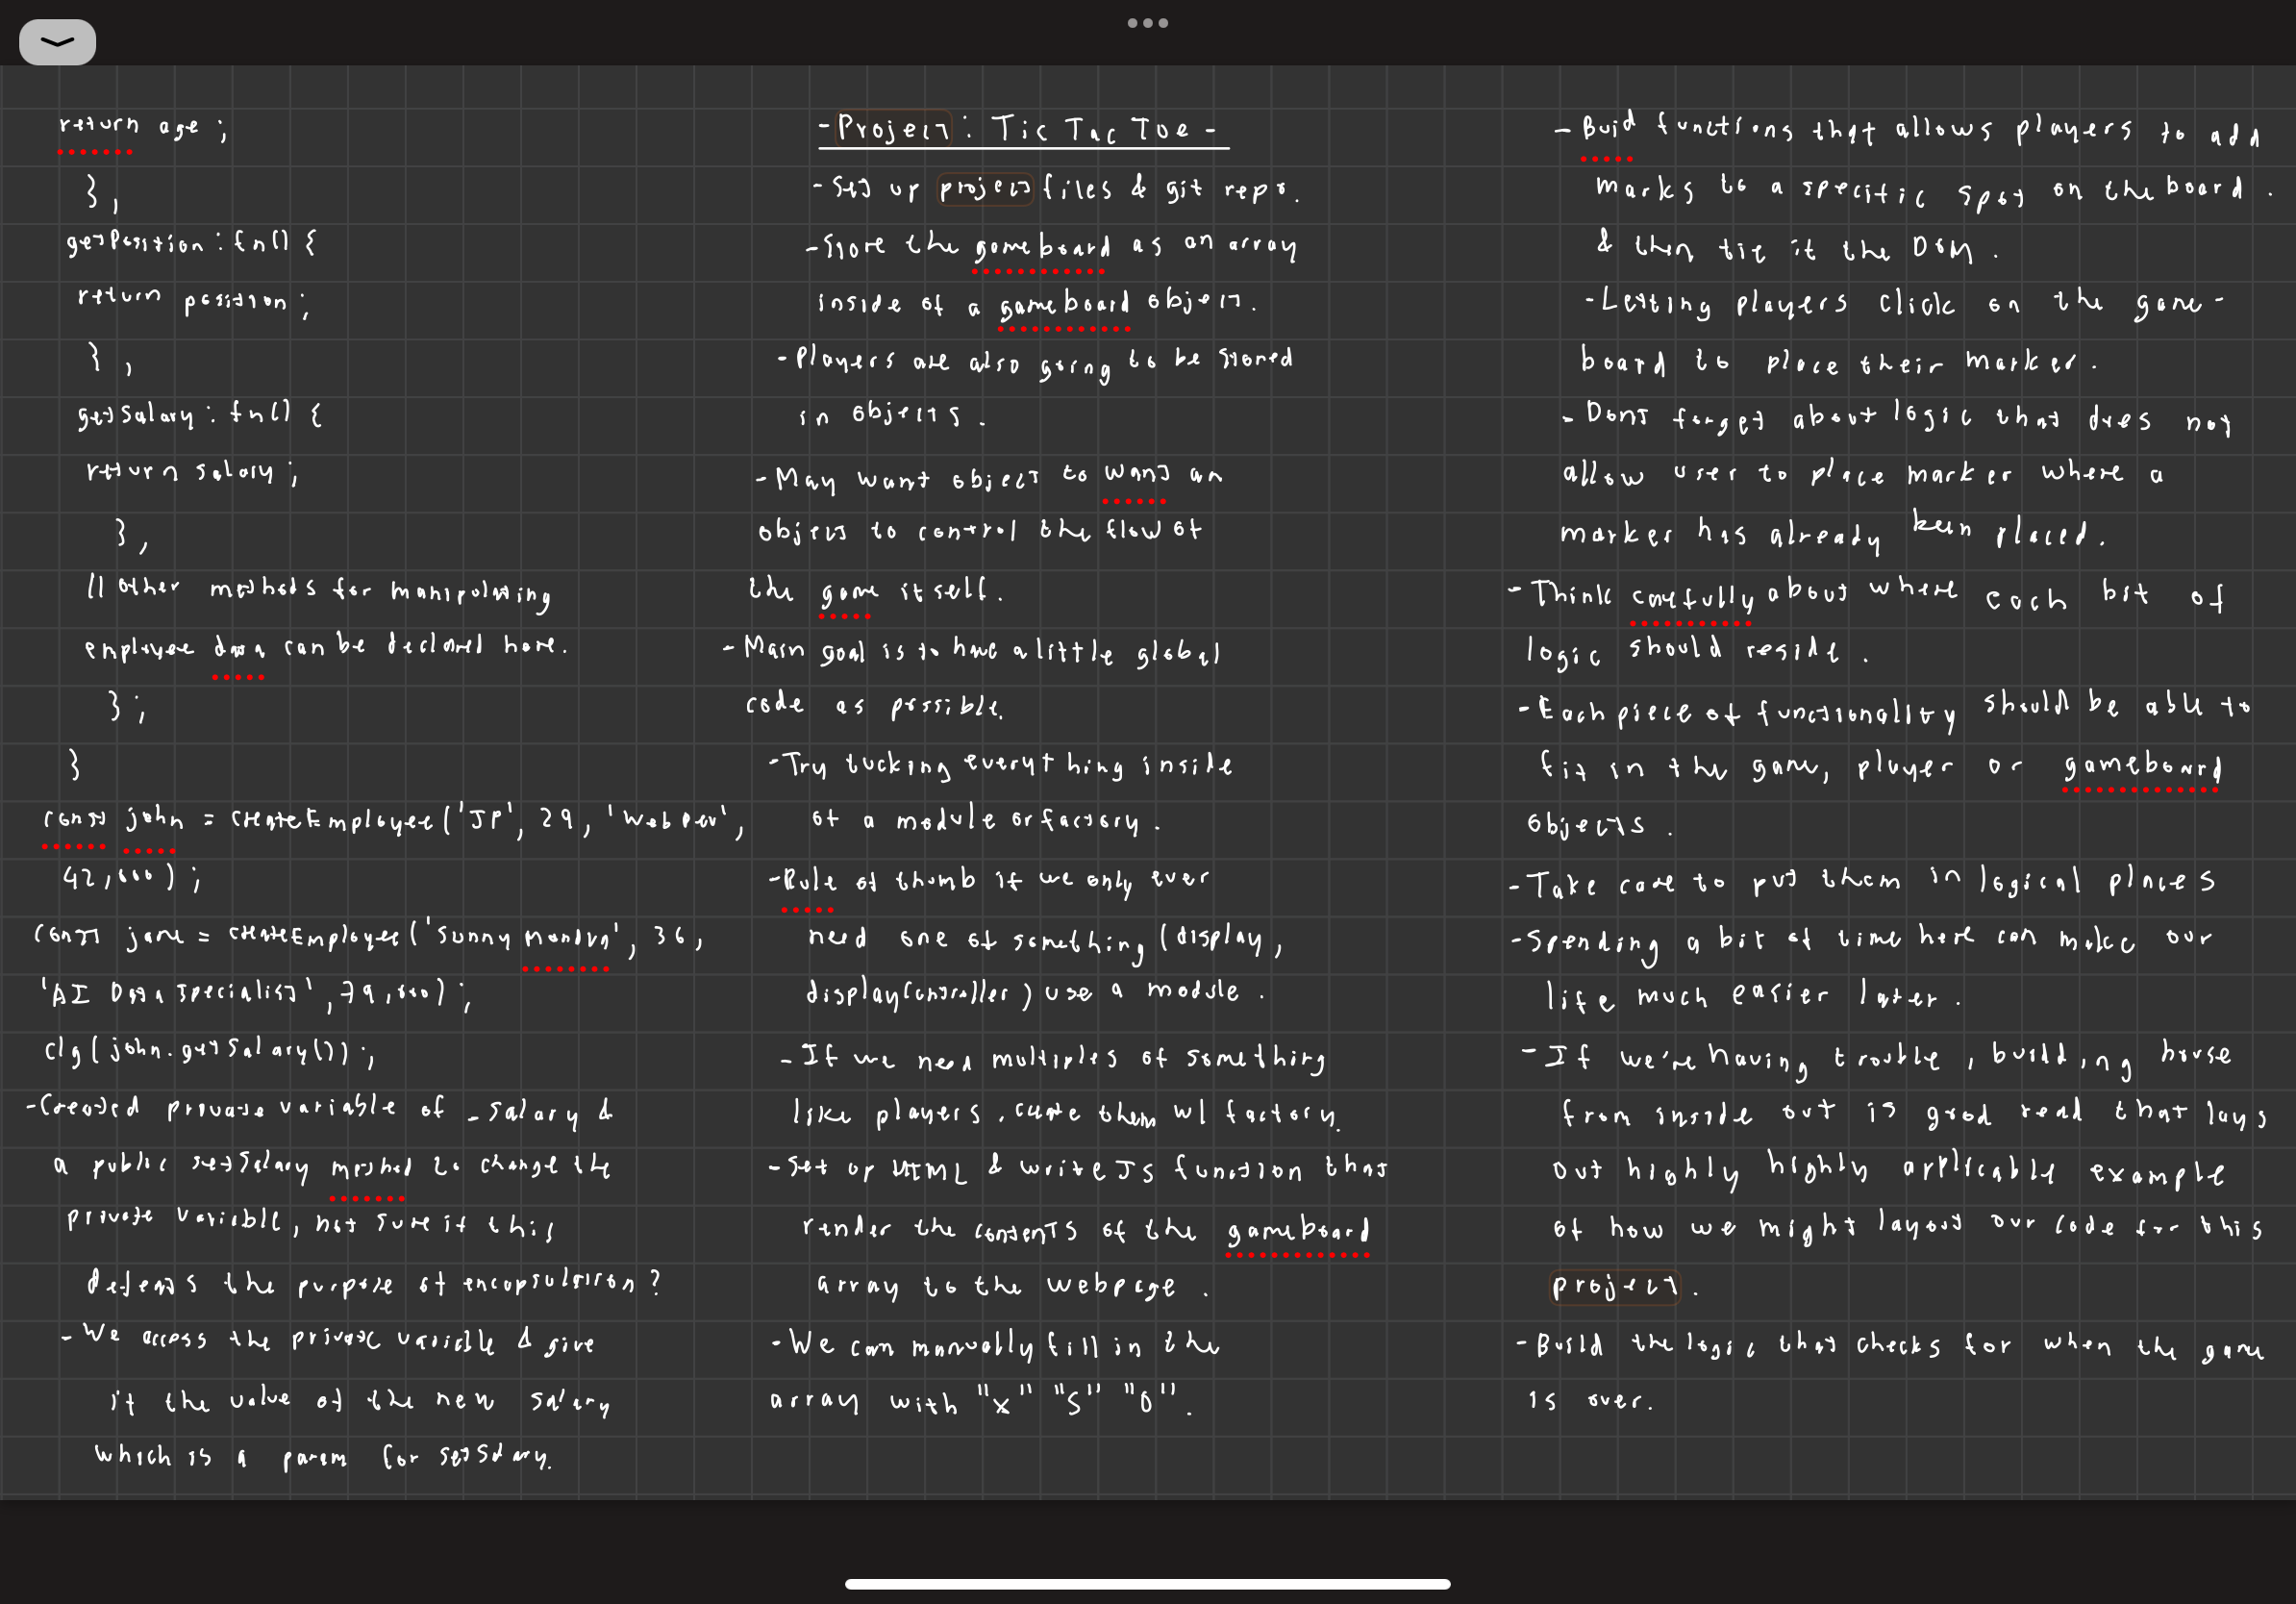 return age ;
} ,
getPosition : fn() {
return position ;
} ,
getSalary : fn() {
return salary ;
} ,
// other methods for manipulating
employee data can be declared here.
} ;
}
const john = createEmployee('JP', 29, 'Web Dev',
42,000) ;
const jane = createEmployee('Sunny 36,
'AI Data Specialist', 79,000) ;
clg(john.getSalary()) ;
- Created private variable of _salary &
a public setSalary method to change the
private variable, not sure if this
defeats the purpose of encapsulation?
- We access the private variable & give
it the value of the new salary
which is a param for setSalary.
- Project : Tic Tac Toe -
- Set up project files & git repo.
- Store the gameboard as an array
inside of a gameboard object.
- Players are also going to be stored
in objects .
- May want object to want an
object to control the flow of
the game itself.
- Main goal is to have a little global
code as possible.
- Try tucking everything inside
of a module or factory .
- Rule of thumb if we only ever
need one of something (display,
displayController) use a module .
- If we need multiples of something
like players , create them w/ factory.
- Set up HTML & write JS function that
render the contents of the gameboard
array to the webpage .
- We can manually fill in the
array with "x" "s" "o" .
- Buid functions that allows players to add
marks to a specific spot on the board .
& then tie it the DOM .
- Letting players click on the game-
board to place their marker .
- Dont forget about logic that does not
allow user to place marker where a
marker has already been placed .
- Think carefully about where each bit of
logic should reside .
- Each piece of functionality should be able to
fit in the game, player or gameboard
objects .
- Take care to put them in logical places
- Spending a bit of time here can make our
life much easier later .
- If we're having trouble , building house
from inside out is good read that lays
out highly highly applicable example
of how we might layout our code for this
project .
- Build the logic that checks for when the game
is over.